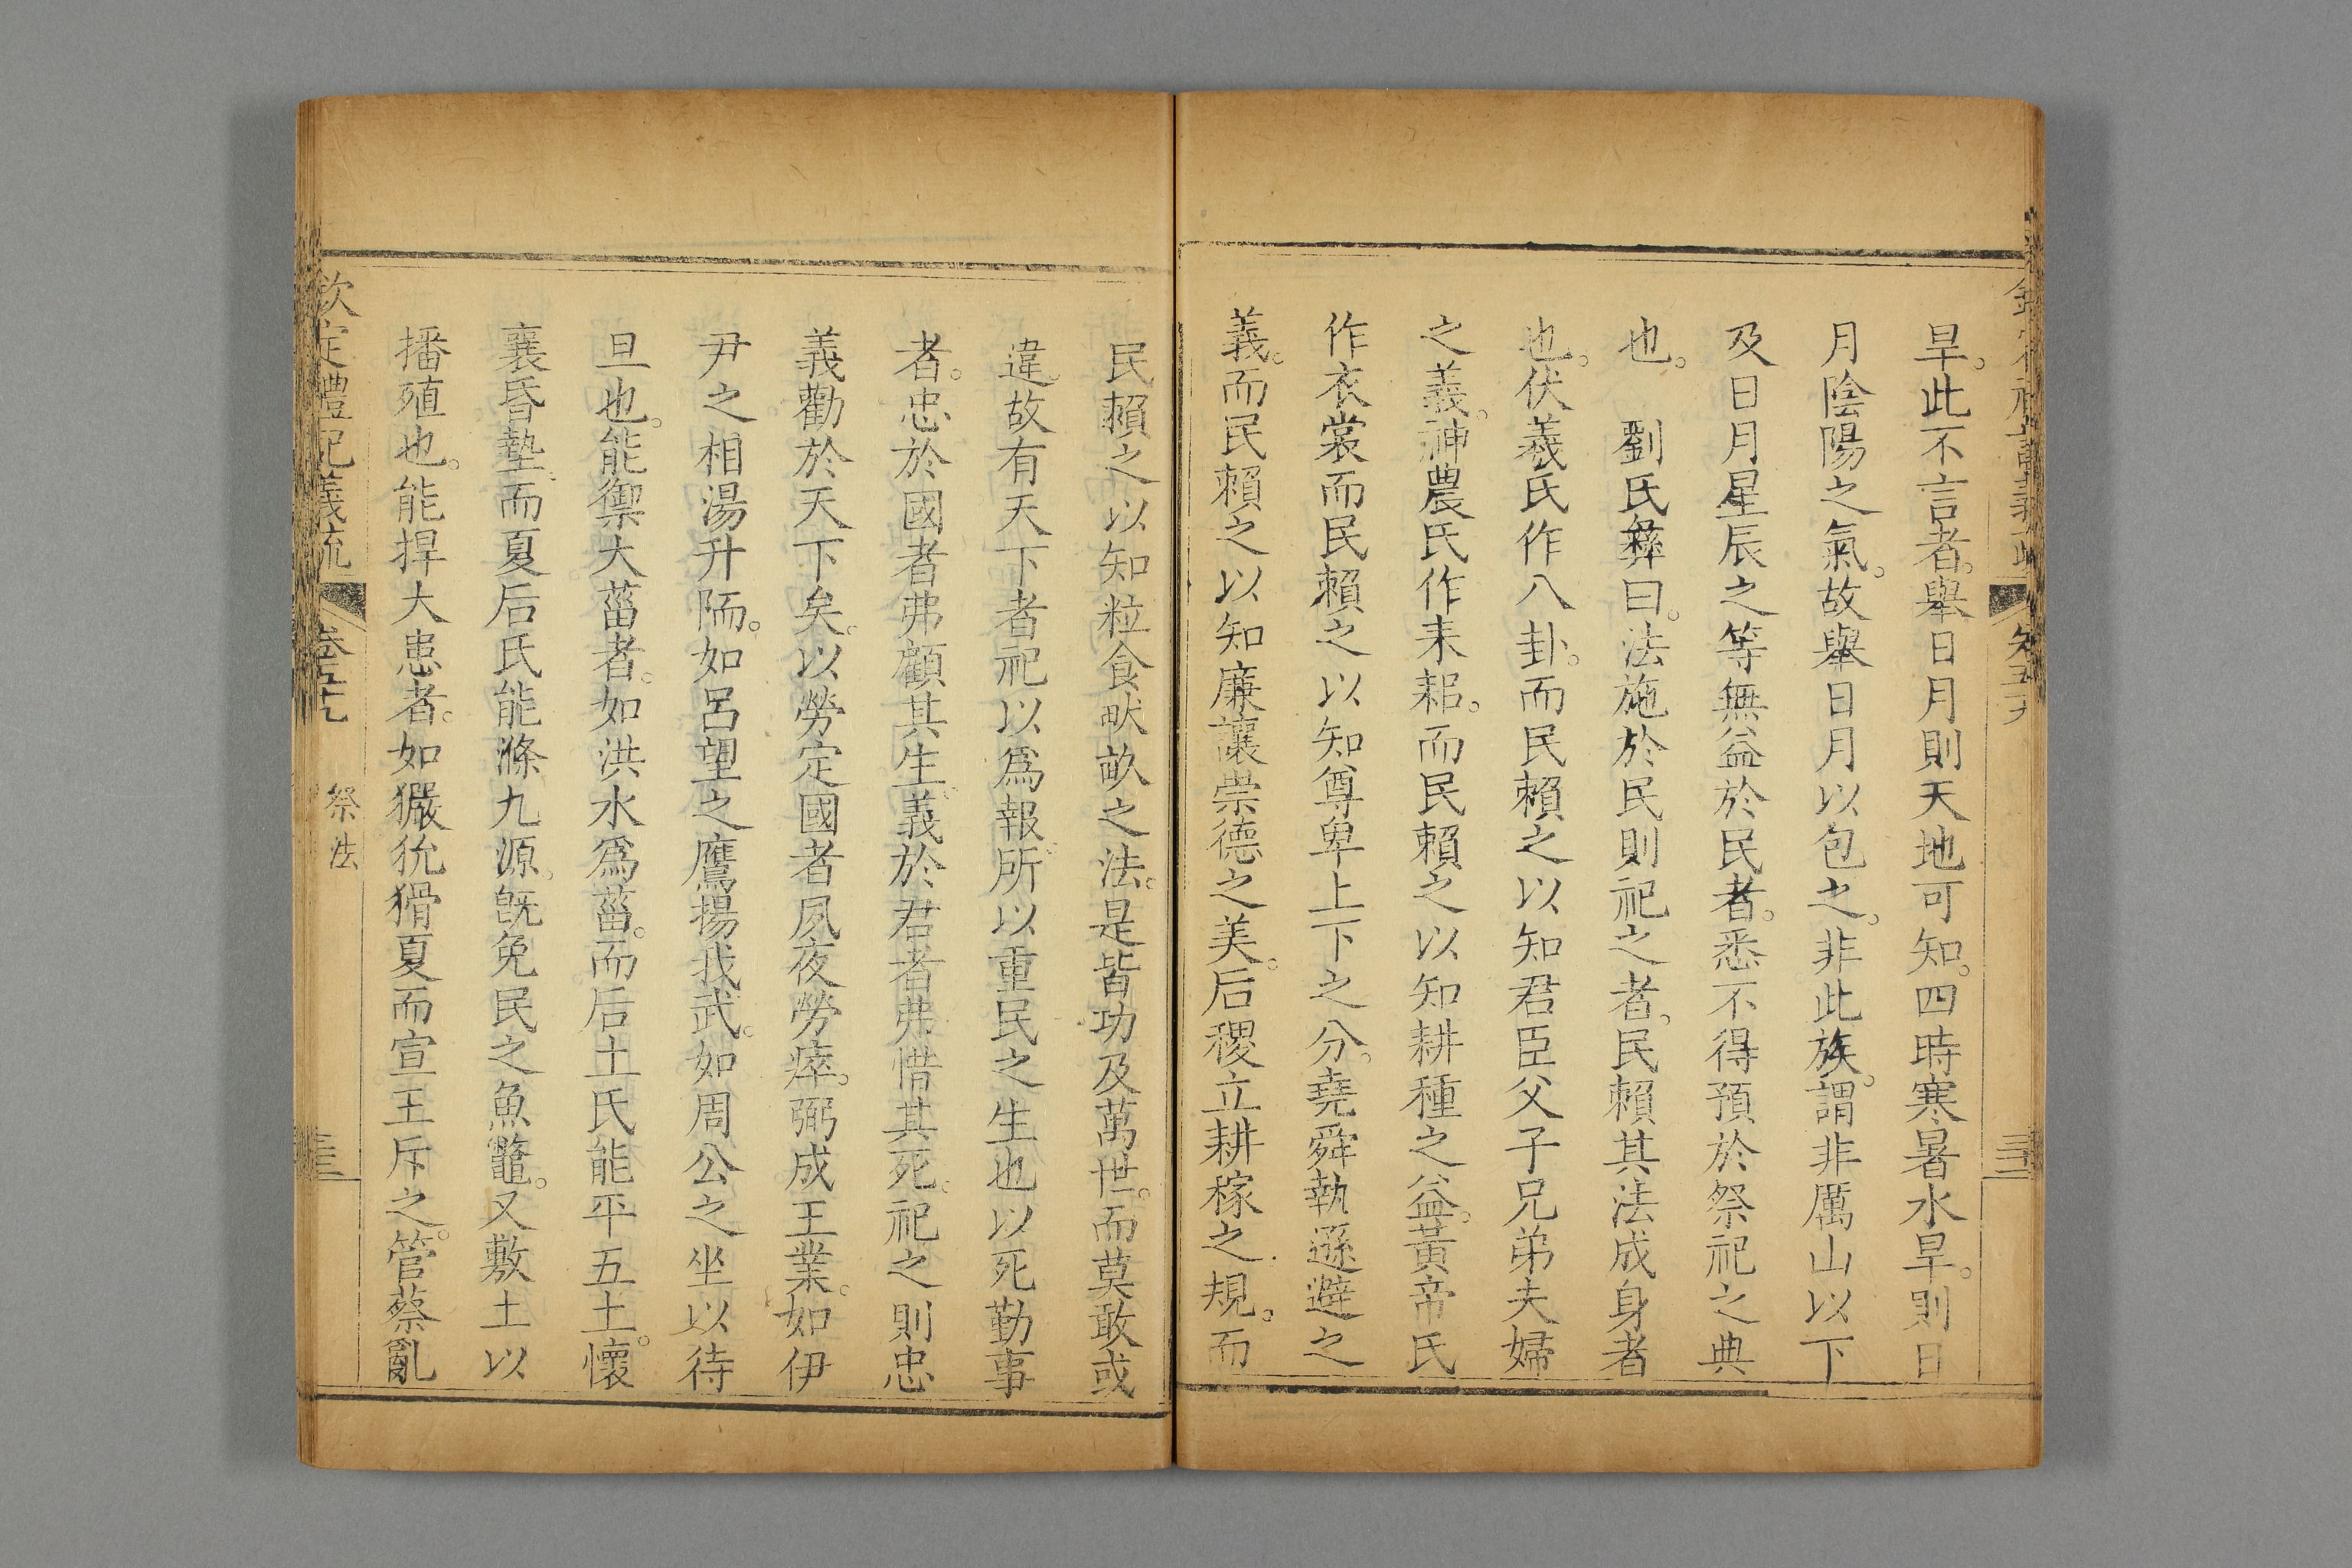 旱。此不言者。舉日月則天地可知。四時寒暑水旱。則日
月陰陽之氣。故舉日月以包之。非此族。謂非厲山以下
及日月星辰之等無益於民者。悉不得預於祭祀之典
也。 劉氏彝曰。法施於民則祀之者。民賴其法成身者
也。伏羲氏作八卦。而民賴之以知君臣父子兄弟夫婦
之義。神農氏作耒耜。而民賴之以知耕種之益。黃帝氏
作衣裳而民賴之以知尊卑上下之分。堯舜執遜避之
義。而民賴之以知廉讓崇德之美。后稷立耕稼之規。而
民賴之以知粒食畎畝之法。是皆功及萬世。而莫敢或
違。故有天下者祀以爲報。所以重民之生也以死勤事
者。忠於國者弗顧其生。義於君者弗惜其死。祀之則忠
義勸於天下矣。以勞定國者夙夜勞瘁。弼成王業。如伊
尹之相湯升陑。如呂望之鷹揚我武。如周公之坐以待
旦也。能禦大菑者。如洪水爲菑。而后土氏能平五土。懷
襄昏墊。而夏后氏能滌九源。旣免民之魚鼈。又敷土以
播殖也。能捍大患者。如玁狁猾夏而宣王斥之。管蔡亂
欽定禮記義疏 卷五十九 祭法